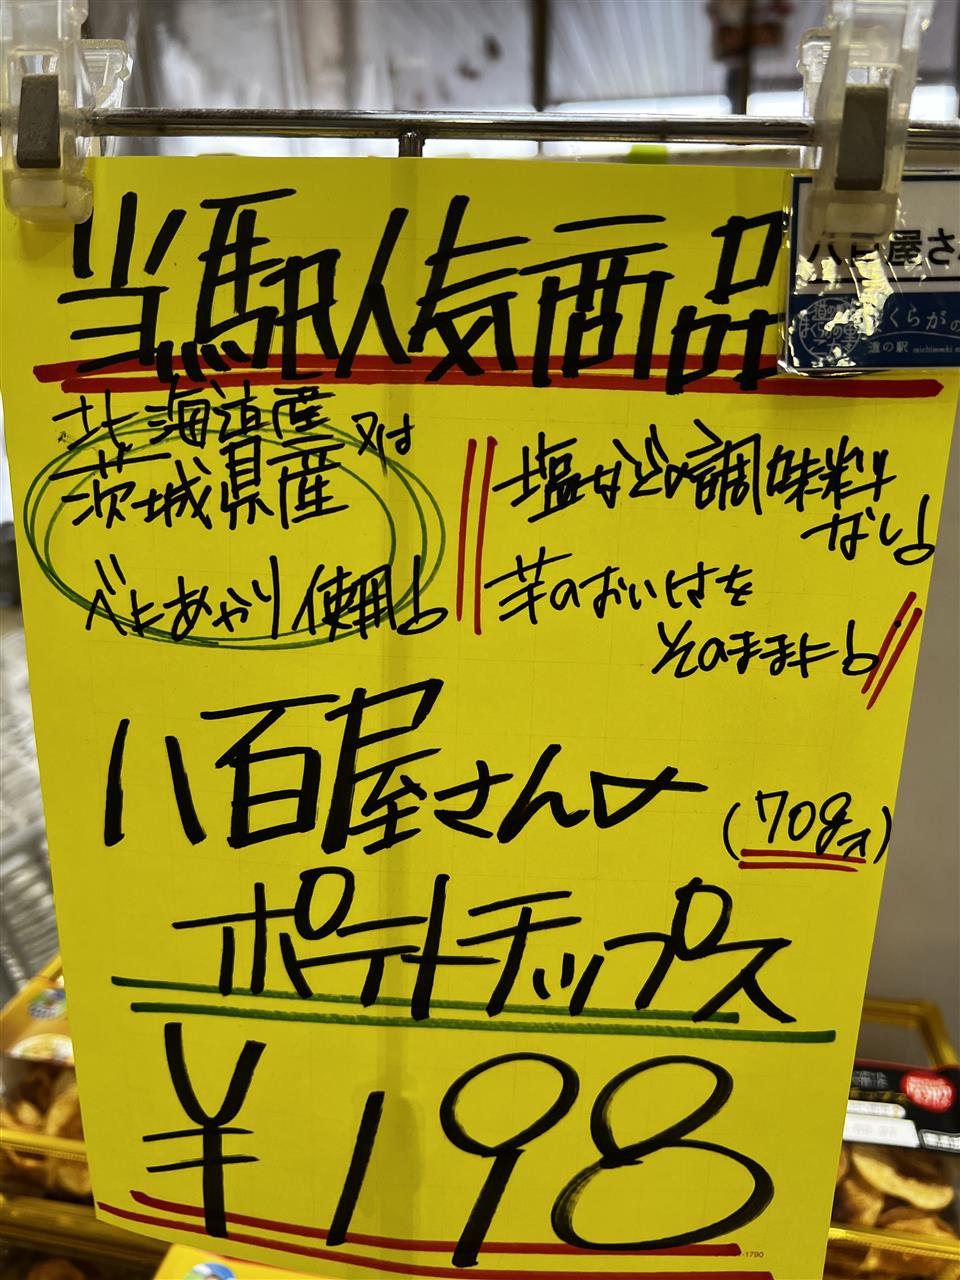 当駅人気商品
八百屋さ
くらがの
道の駅
北海道産又は
茨城県産
べにあかり使用!
塩などの調味料
なし!
芋のおいしさを
そのままに!
八百屋さんの
(70g入)
ポテトチップス
¥198